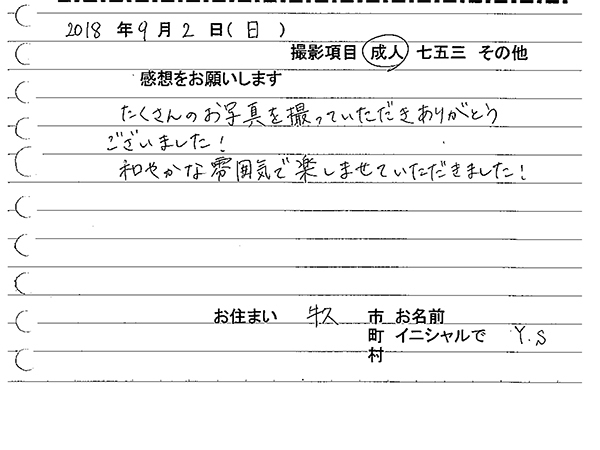 2018 年 9 月 2 日 ( 日 )
撮影項目 成人 七五三 その他
感想をお願いします
たくさんのお写真を撮っていただきありがとう
ございました!
和やかな雰囲気で楽しませていただきました!
お住まい 市 お名前
町 イニシャルで Y.S
村